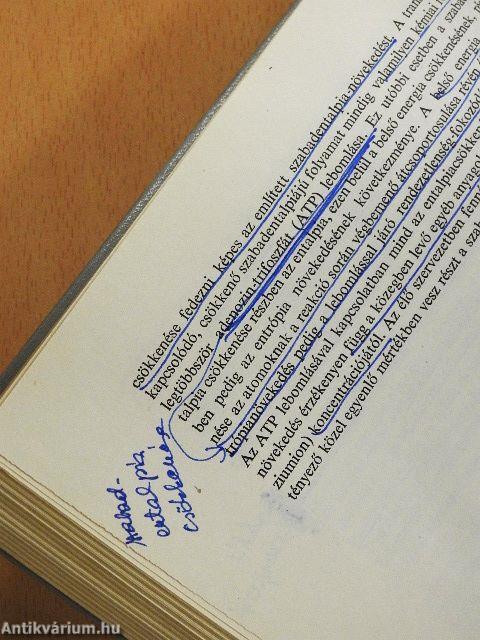 csökkenése fedezni képes az említett szabadentalpia-növekedést. A tran
kapcsolódó, csökkenő szabadentalpiájú folyamat mindig valamilyen kémiai
legtöbbször adenozin-trifoszfát (ATP) lebomlása. Ez utóbbi esetben a szaba
talpia csökkenése részben az entalpia, ezen belül a belső energia csökkenésének,
ben pedig az entrópia növekedésének következménye. A belső energia
nése az atomoknak a reakció során végbemenő átcsoportosulása révén
trópianövekedés pedig a lebomlással járó rendezetlenség-fokozó
Az ATP lebomlásával kapcsolatban mind az entalpiacsökken
növekedés érzékenyen függ a közegben levő egyéb anyago
ziumion) koncentrációjától. Az élő szervezetben fenn
tényező közel egyenlő mértékben vesz részt a sza
szabad-
entalpia
csökkenése
Antikvárium.hu